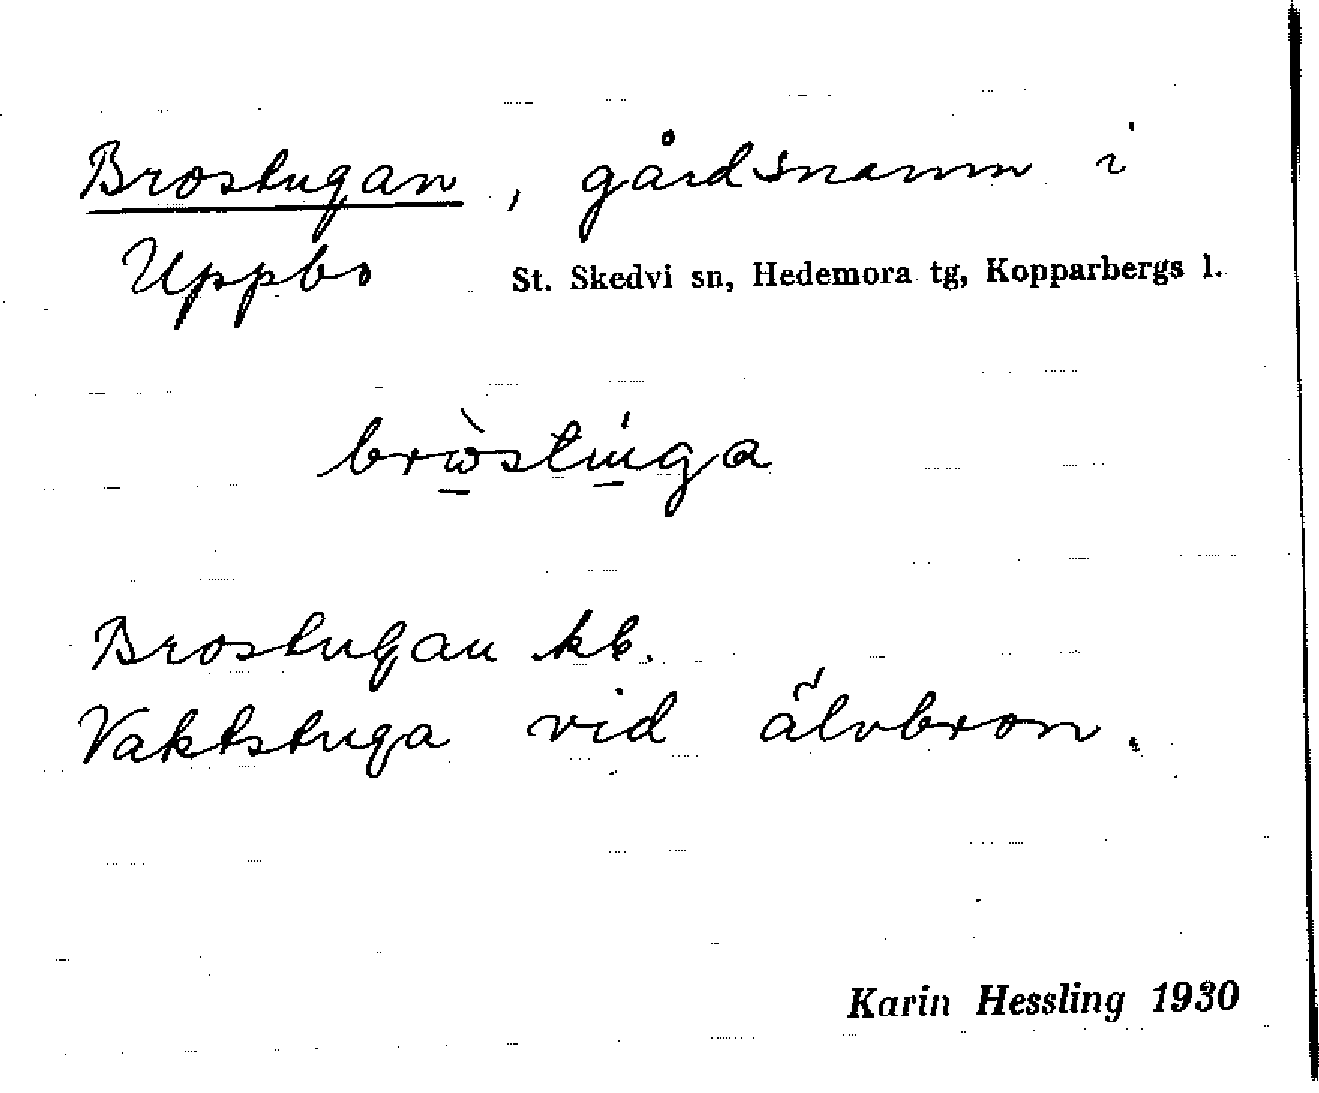 Brostugan, gårdsnamn i
Uppbo St. Skedvi sn, Hedemora tg, Kopparbergs l.
Brostugan kb.
Vaktstuga vid älvbron.
Karin Hessling 1930